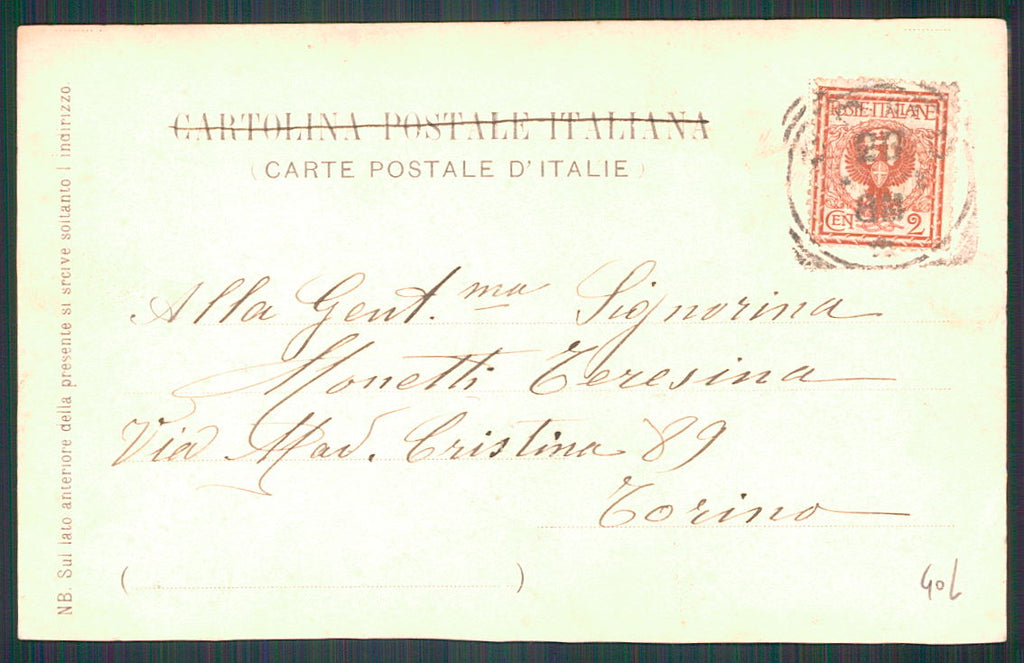 CARTOLINA POSTALE ITALIANA
(CARTE POSTALE D'ITALIE)
POSTE·ITALIANE
20
8M
CEN 2
Alla Gent.ma Signorina
Monetti Teresina
Via Mad. Cristina 89
Torino
( )
40L
NB. Sul lato anteriore della presente si srcive soltanto l indirizzo